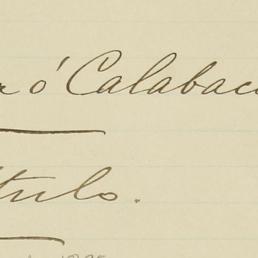 r ó Calabac
ítulo.